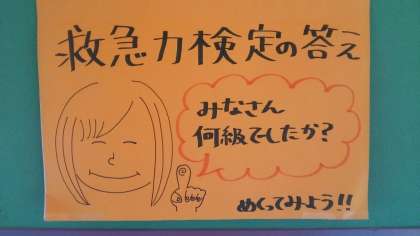 救急力検定の答え
みなさん
何級でしたか?
めくってみよう!!